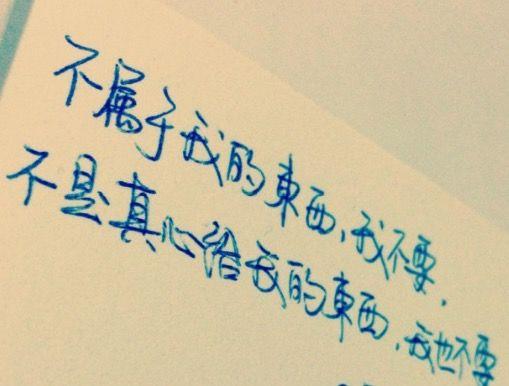 不属于我的東西,我不要,
不是真心给我的東西,我也不要